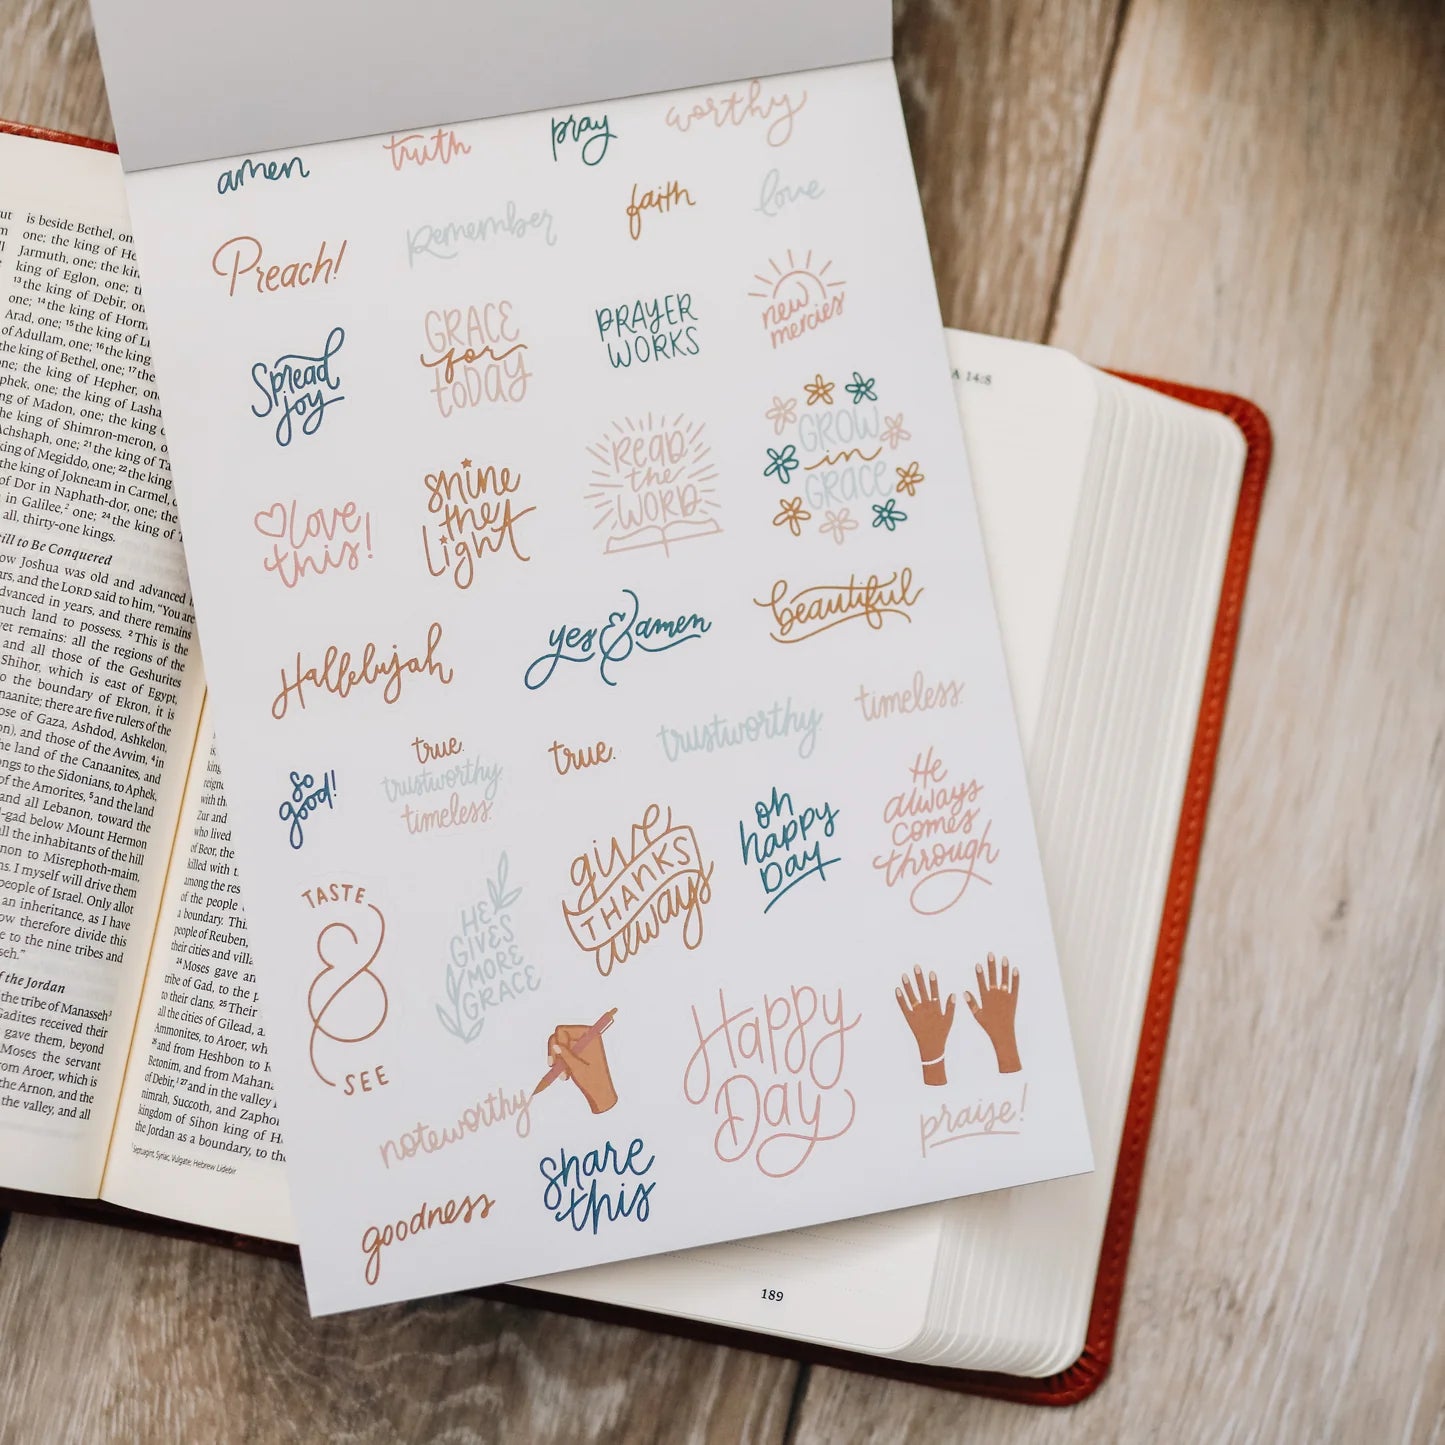 amen
truth
pray
worthy
Preach!
remember
faith
love
Spread
joy
GRACE
for
TODAY
PRAYER
WORKS
new
mercies
love
this!
shine
the
light
READ
the
WORD
GROW
in
GRACE
Hallelujah
yes & amen
beautiful
so
good!
true.
trustworthy.
timeless.
true.
trustworthy.
timeless.
TASTE
&
SEE
HE
GIVES
MORE
GRACE
give
THANKS
always
oh
happy
DAY
He
always
comes
through
noteworthy
Happy
Day
praise!
goodness
share
this
is beside Bethel, on
one; the king of He
Jarmuth, one; the kin
king of Eglon, one; t
13 the king of Debir, on
one; 14 the king of Horm
Arad, one; 15 the king of Li
of Adullam, one; 16 the king
the king of Bethel, one; 17 the
one; the king of Hepher, on
phek, one; the king of Lasha
ng of Madon, one; the king o
the king of Shimron-meron, o
Achshaph, one; 21 the king of Ta
king of Megiddo, one; 22 the king
the king of Jokneam in Carmel,
of Dor in Naphath-dor, one; the
in Galilee,2 one; 24 the king of T
all, thirty-one kings.
ill to Be Conquered
ow Joshua was old and advanced i
ars, and the LORD said to him, "You are
dvanced in years, and there remains
much land to possess. 2 This is the
yet remains: all the regions of the
and all those of the Geshurites
Shihor, which is east of Egypt,
o the boundary of Ekron, it is
naanite; there are five rulers of the
ose of Gaza, Ashdod, Ashkelon,
on), and those of the Avvim, 4 in
he land of the Canaanites, and
ongs to the Sidonians, to Aphek,
of the Amorites, 5 and the land
and all Lebanon, toward the
l-gad below Mount Hermon
ll the inhabitants of the hill
non to Misrephoth-maim,
ns. I myself will drive them
people of Israel. Only allot
an inheritance, as I have
ow therefore divide this
e to the nine tribes and
seh."
f the Jordan
the tribe of Manasseh3
Gadites received their
gave them, beyond
Moses the servant
rom Aroer, which is
the Arnon, and the
the valley, and all
is,
king
reign
with th
Zur and
who lived
of Beor, the
killed with t
among the res
of the people
a boundary. Thi
people of Reuben,
their cities and villa
24 Moses gave an
tribe of Gad, to the p
to their clans. 25 Their
all the cities of Gilead, a
Ammonites, to Aroer, wh
26 and from Heshbon to R
Betonim, and from Mahana
of Debir,1 27 and in the valley
nimrah, Succoth, and Zapho
kingdom of Sihon king of H
the Jordan as a boundary, to the
1 Septuagint, Syriac, Vulgate; Hebrew Lidebir
A 14:8
189